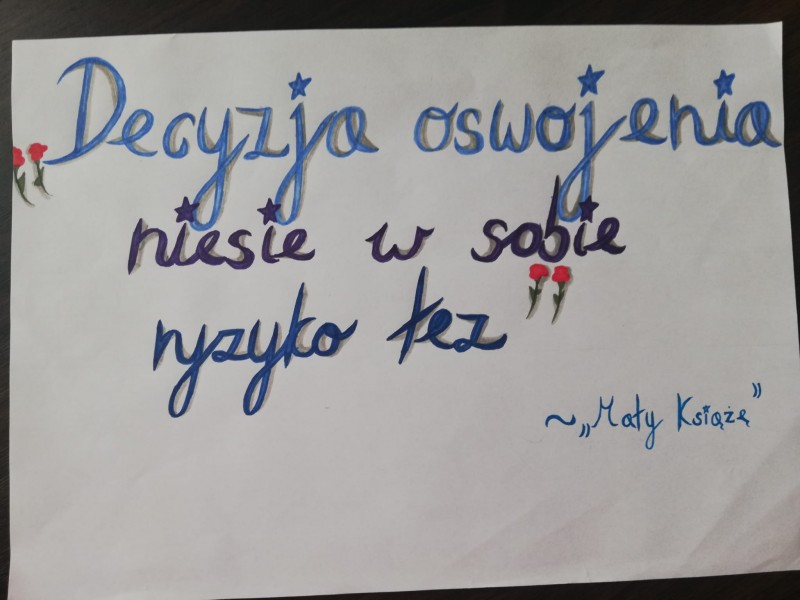 "Decyzja oswojenia
niesie w sobie
ryzyko łez"
~„Mały Książę"